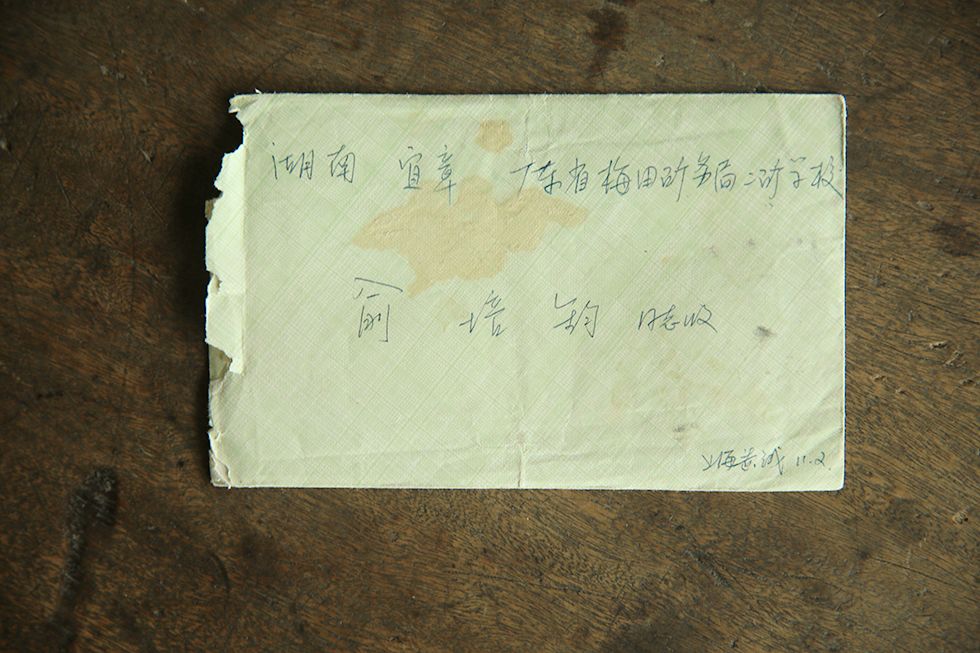 湖南 宜章 广东省梅田矿务局二矿学校
俞 培 钧 同志收
上海 11.2